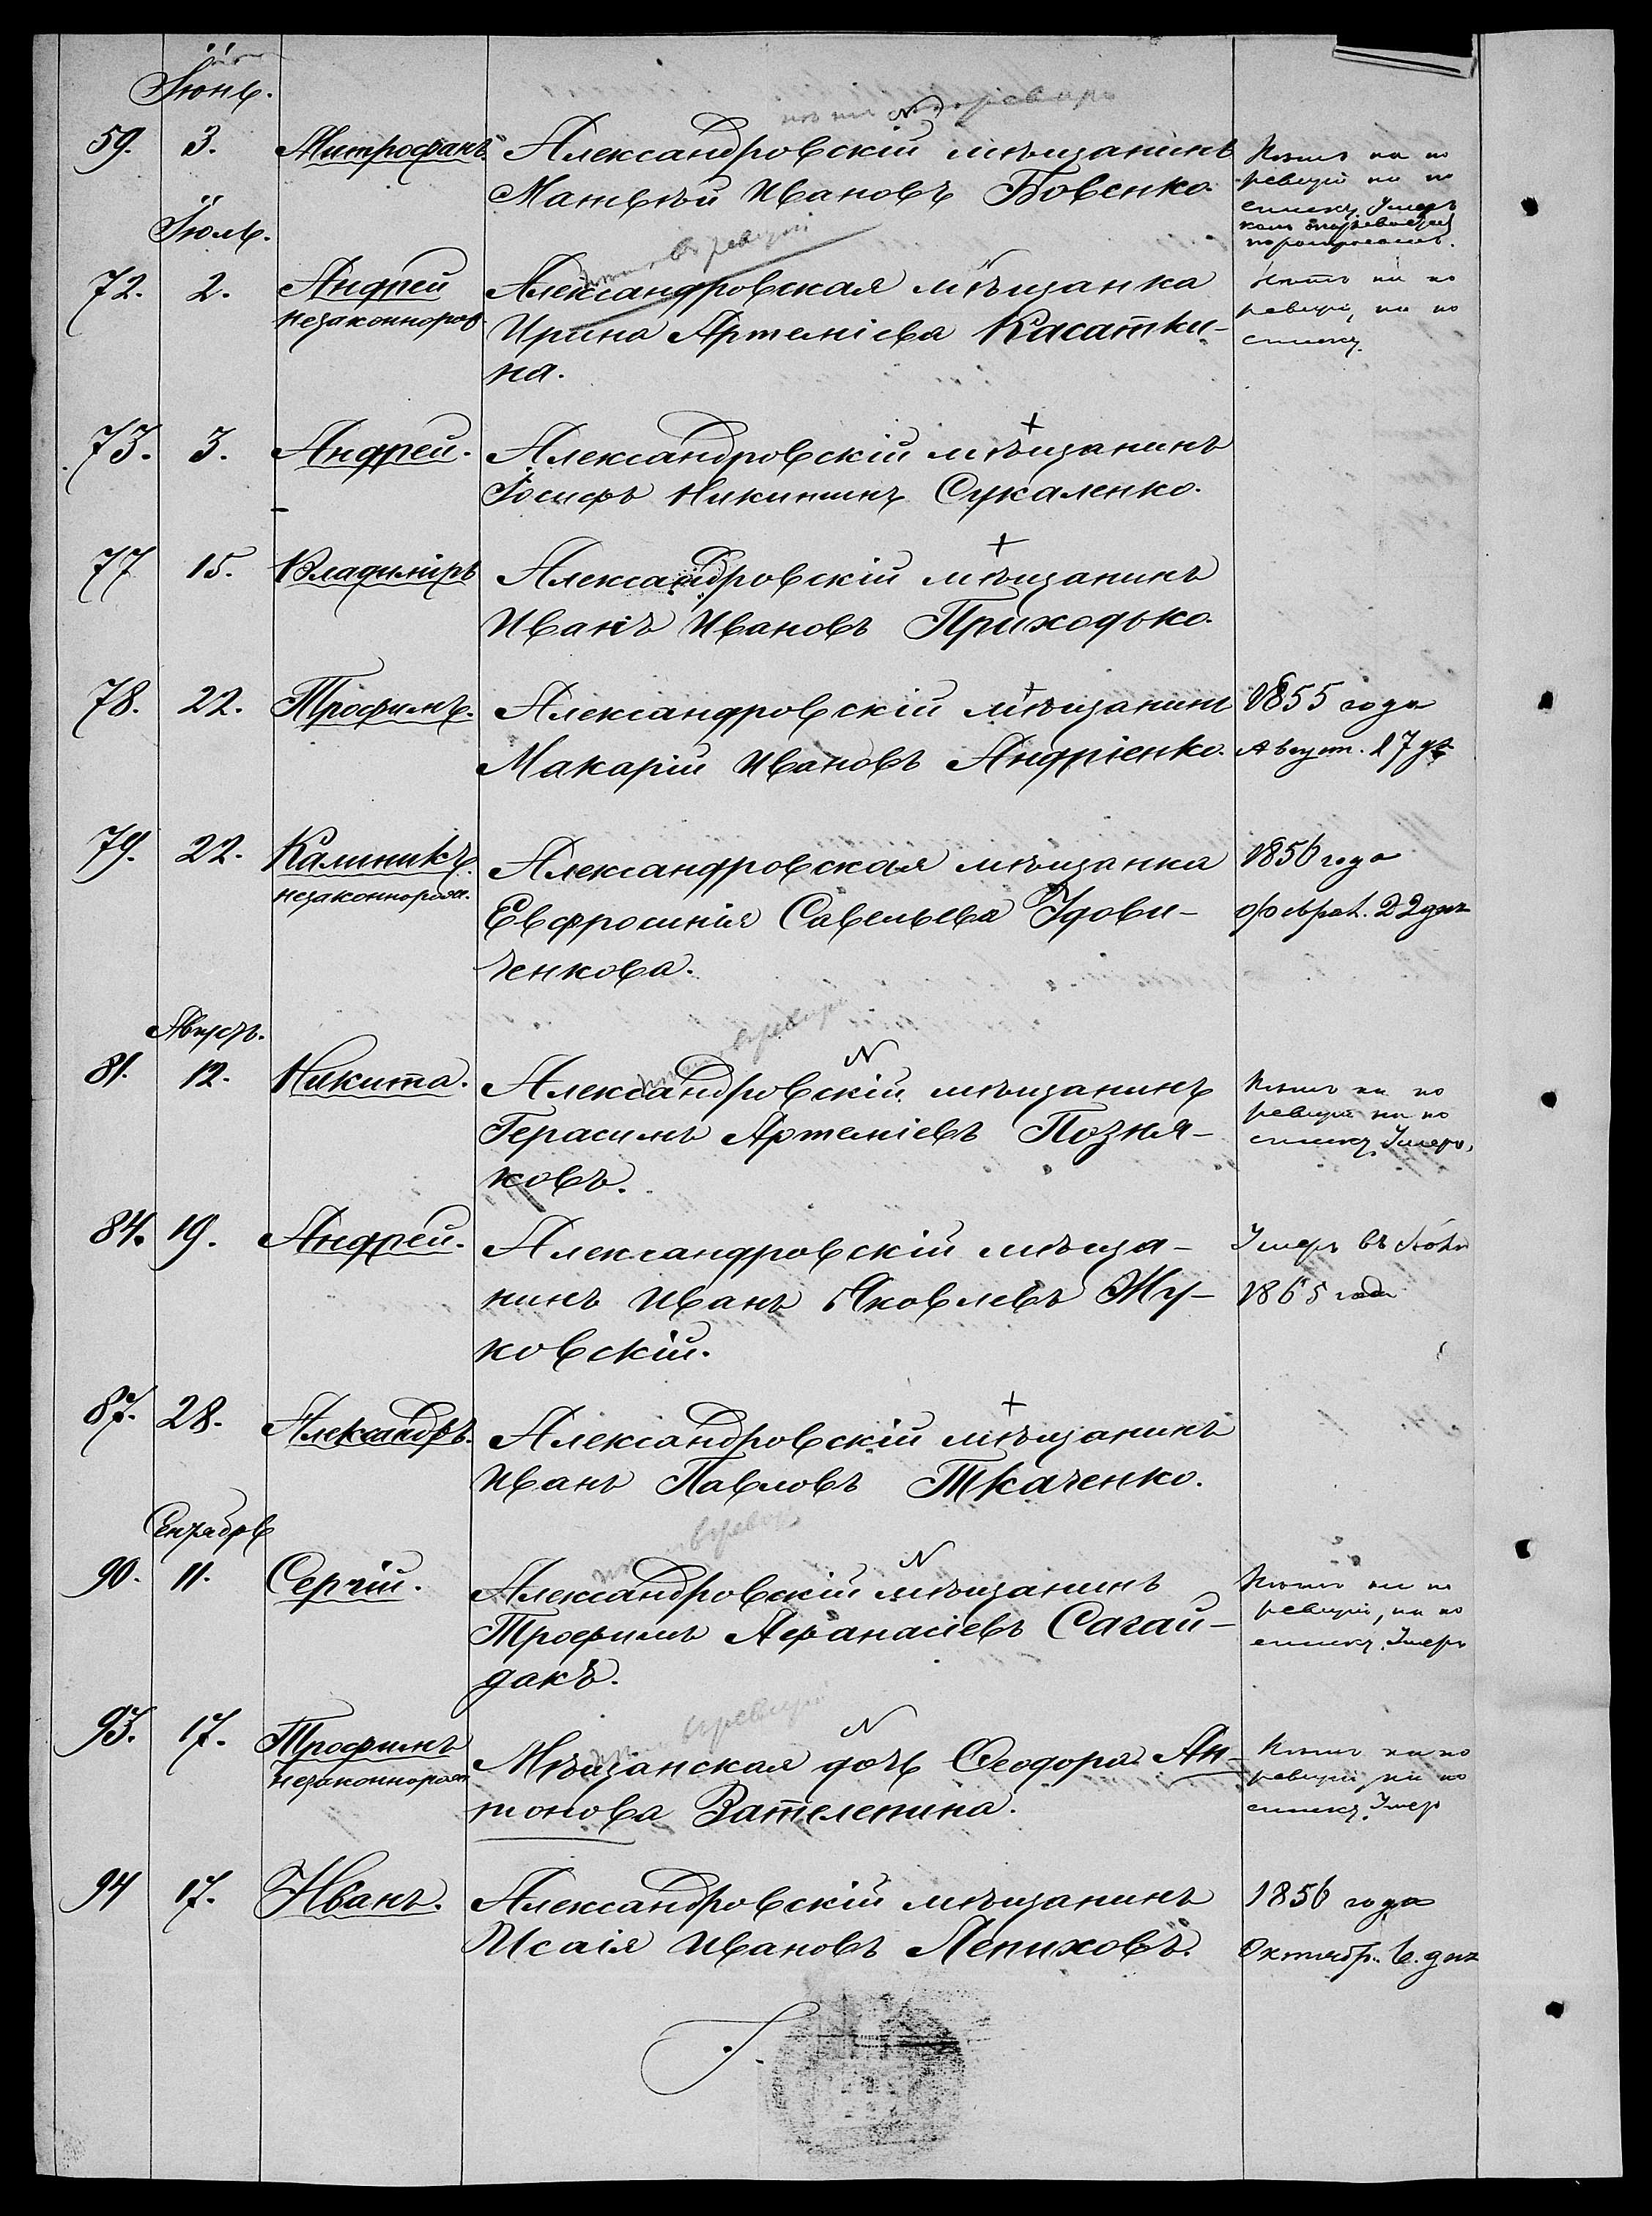 Іюнь.
59. 3. Митрофанъ. Александровскій мѣщанинъ Нѣтъ ни по
Матвѣй Ивановъ Бовенко. ревизіи ни по
списку. Умеръ
Іюль.
72. 2. Андрей Александровская мѣщанка Нѣтъ ни по
незаконнорож. Ирина Артеміева Касатки- ревизіи, ни по
на. списку.
73. 3. Андрей. Александровскій мѣщанинъ
Іосифъ Никитинъ Сукаленко.
77 15. Владиміръ Александровскій мѣщанинъ
Иванъ Ивановъ Приходько.
78. 22. Трофимъ. Александровскій мѣщанинъ 1855 года
Макарій Ивановъ Андріенко. Август. 17 дня
79. 22. Калиникъ. Александровская мѣщанка 1856 года
незаконнорож. Евфросинія Савельева Удови- Феврал. 22 дня
ченкова.
Августъ.
81. 12. Никита. Александровскій мѣщанинъ Нѣтъ ни по
Герасимъ Артеміевъ Позня- ревизіи ни по
ковъ. списку. Умеръ.
84. 19. Андрей. Александровскій мѣща- Умеръ въ
нинъ Иванъ Яковлевъ Жу- 1865 году
ковскій.
87. 28. Александръ. Александровскій мѣщанинъ
Иванъ Павловъ Ткаченко.
Сентябрь
90. 11. Сергій. Александровскій мѣщанинъ Нѣтъ ни по
Трофимъ Афанасіевъ Сагай- ревизіи, ни по
дакъ. списку. Умеръ
93. 17. Трофимъ Мѣщанская дочь Феодора Ан- Нѣтъ ни по
незаконнорож. тонова Зателепина. ревизіи ни по
списку. Умер
94 17. Иванъ. Александровскій мѣщанинъ 1856 года
Исаія Ивановъ Лепиховъ. Октябр. 6. дня